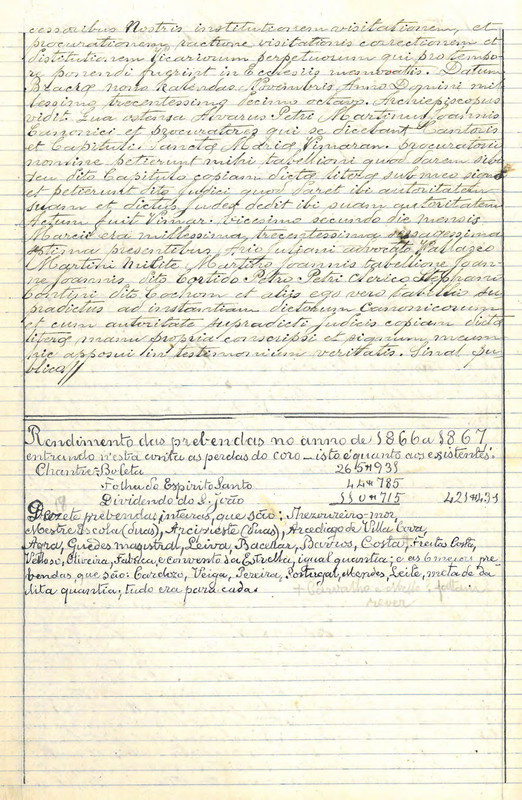 cessoribus Nostris institutionem visitationem, et
procurationem ractione visitationis correctionem et
distitutionem vicariorum perpetuorum qui pro tempo-
re ponendi fuerint in Ecclesiis memoratis. Datum
Bracræ nono Kalendas Novembris Anno Domini mil-
lessimo trecentessimo decimo octavo. Archiepiscopus
vidit. Qua ostansa Alvarus Petri Martinus Joannis
Canonici et procuratores qui se dicebant Cantoris
et Capituli Sanctæ Mariæ Vimaran. procuratorio
nomine petierunt mihi tabellioni quod darem sibi
seu dito Capitulo copiam dictæ literæ sub meo signo
et petierunt dito Judici quod daret ibi autoritatem
suam et dictus Judex dedit ibi suam autoritatem
Actum fuit Vimar. vicesimo secundo die mensis
Marcii era millessima trecentessima
septima presentibus Juliani advocato
Martini milite Martino Joannis tabellione Joan-
ne Joannis dito Cortido Petro Petri Clerico Stephano
dito Cochom et aliis ego vero tabellio su-
pradictus ad instantiam dictorum Canonicorum
et cum autoritate supradicti judicis copiam dictæ
literæ manu propria conscripsi et signum meum
hic apposui in testimonium veritatis. Sinal pu-
blico//
Rendimento das prebendas no anno de 1866 a 1867,
entrando n'esta conta as perdas do coro – isto é quanto aos existentes:
Chantre – Boleta 265#931
Folha do Espirito Santo 44#785
Dividendo do S. João 110#715 421#431
Dezete prebendas inteiras, que são: Thezoureiro-mor,
Mestre Escola (duas), Arcipreste (duas), Arcediago de Villa Cova,
Agra, Guedes magistral, Leiva, Bacellar, Barros, Costa, Freitas Costa,
Vellozo, Oliveira, Fabrica, e convento da Estrella, igual quantia; e as 6 meias pre-
bendas que são: Cardozo, Veiga, Pereira, Portugal, Mendes, Leite, metade da
dita quantia; tudo era para cada
+ Carvalho e
rever